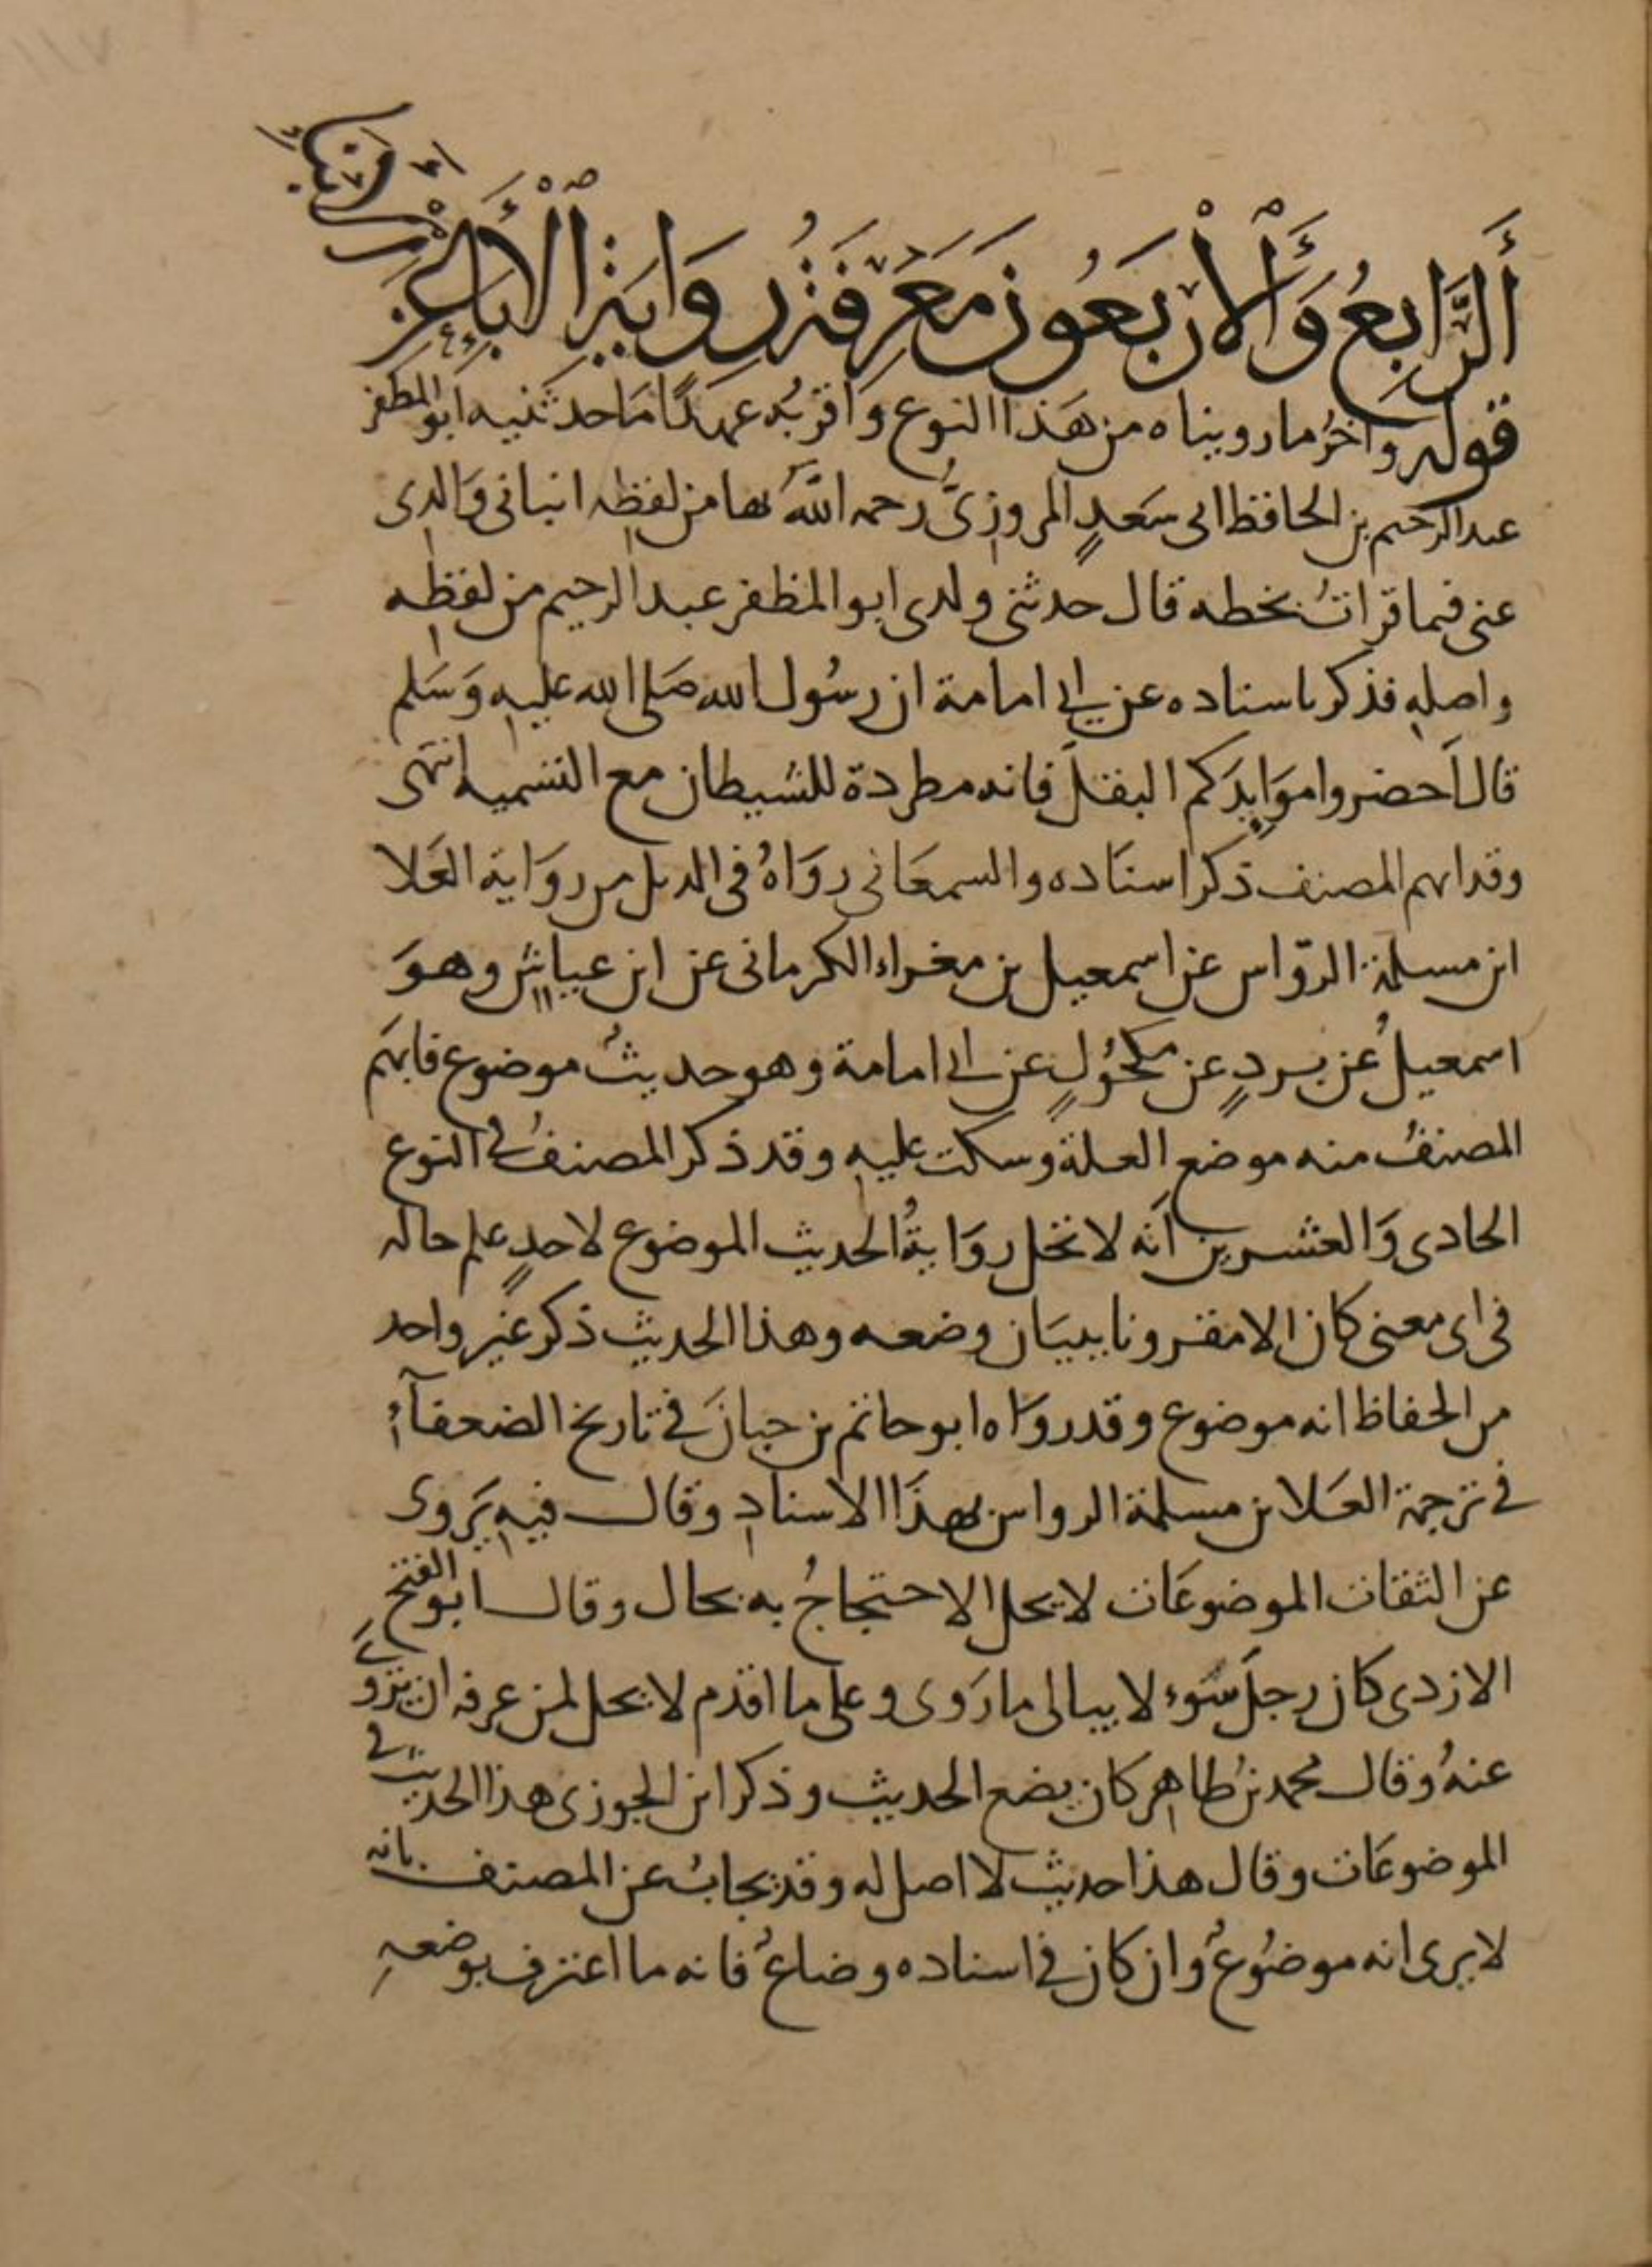 أَلرَّابِعُ وَٱلْأَرْبَعُونَ مَعْرِفَةُ رِوَايَةِ ٱلْأَبَاءِ عَنِ الْأَبْنَاءِ
قوله وآخرُ ما رويناه من هَذا النوع وَأقربُه عهدًا مَا حدثنيه ابو المظفر
عبد الرحيم بن الحافظ ابى سَعدٍ المروزِىُّ رحمه اللهُ بها من لفظِه انبانى وَالدِى
عنى فيما قراتُ بخطه قال حدثنى ولدى ابو المظفر عبد الرحيم من لفظِه
واصلِه فذكر باسناده عن ابى امامة ان رسُول الله صَلى الله عليه وَسَلم
قال اَحضروا موَايِدَكم البقلَ فانه مطردة للشيطان مع التسميه انتهى
وقد ابهم المصنف ذكر اسنَاده والسمعَانى روَاهُ فى الذيل من روَاية العَلا
ابن مسلمة الروّاس عن اسمعيل بن مغراء الكرمانى عن ابن عياش وهوَ
اسمعيلُ عن بردٍ عن مكحُولٍ عن ابى امامة وهو حديثُ موضوع فابهَم
المصنفُ منه موضع العلة وسكت عليه وقد ذكر المصنفُ فى النوع
الحادى وَالعشرين اَنه لا تحل روَايةُ الحديث الموضوع لاحدٍ علم حاله
فى اى معنى كان الا مقرونا ببيَان وضعه وهذا الحديث ذكر غيْر واحد
من الحفاظ انه موضوع وقد روَاه ابو حاتم بن حبانَ فى تاريخ الضعفآءُ
فى ترجمة العَلا بن مسلمة الرواس بهذَا الاسنادِ وقال فيهِ يَروى
عن الثقات الموضوعَات لا يحل الاحتجاجُ به بحال وقال ابو الفتح
الازدى كان رجلَ سَوء لا يبالى ما رَوى وعلى ما اقدم لا يحل لمن عرفه ان يروى
عنهُ وقال محمد بنُ طاهر كان يضع الحديث وذكر ابن الجوزى هذا الحديث فى
الموضوعَات وقال هذا حديث لا اصل له وقد يجابُ عن المصنف بانه
لا يرى انه موضُوعُ وان كان فى اسناده وضاعُ فانه ما اعترف بوضعهِ